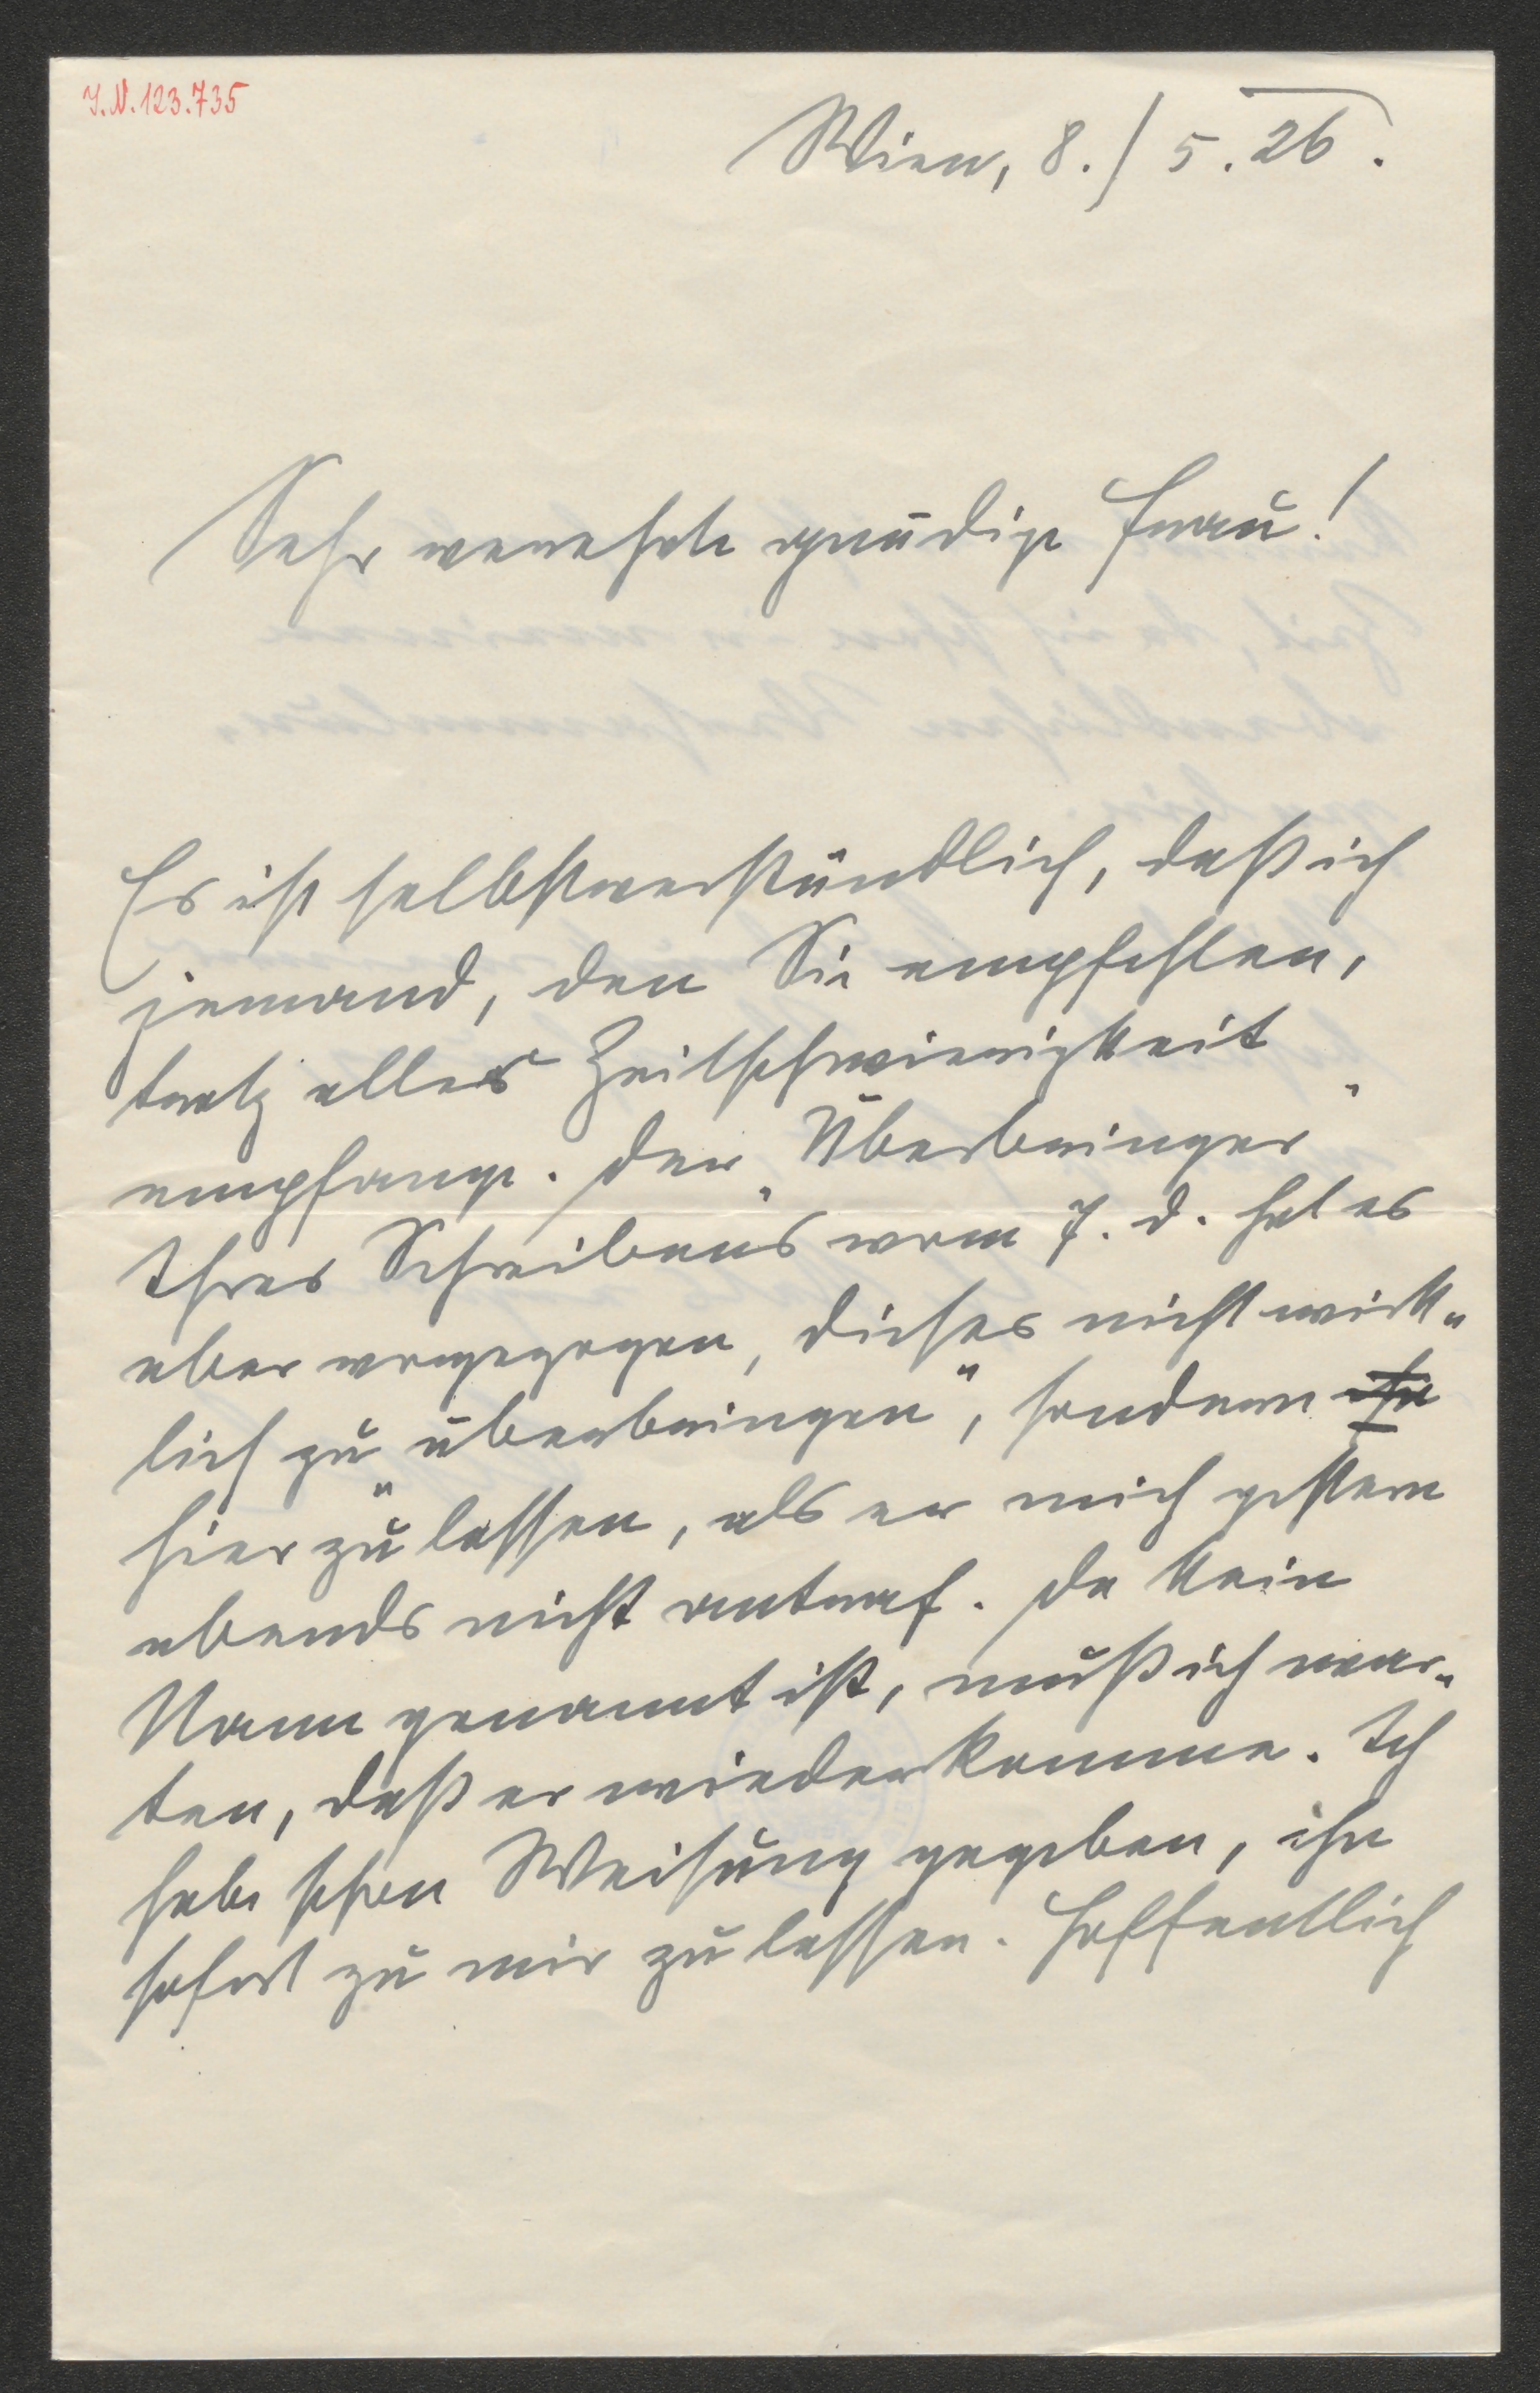 I.N.123.735
Wien, 8./5.26.
Sehr verehrte gnädige Frau!
Es ist selbstverständlich, daß ich
jemand, den Sie empfehlen,
trotz aller Zeitschwierigkeit
empfange. Der „Überbringer“
Ihres Schreibens vom 7. d. hat es
aber vorgezogen, dieses nicht wirk-
lich zu „überbringen“, sondern
hier zu lassen, als er mich gestern
abends nicht antraf. Da kein
Name genannt ist, muß ich war-
ten, daß er wiederkomme. Ich
habe schon Weisung gegeben, ihn
sofort zu mir zu lassen. Hoffentlich